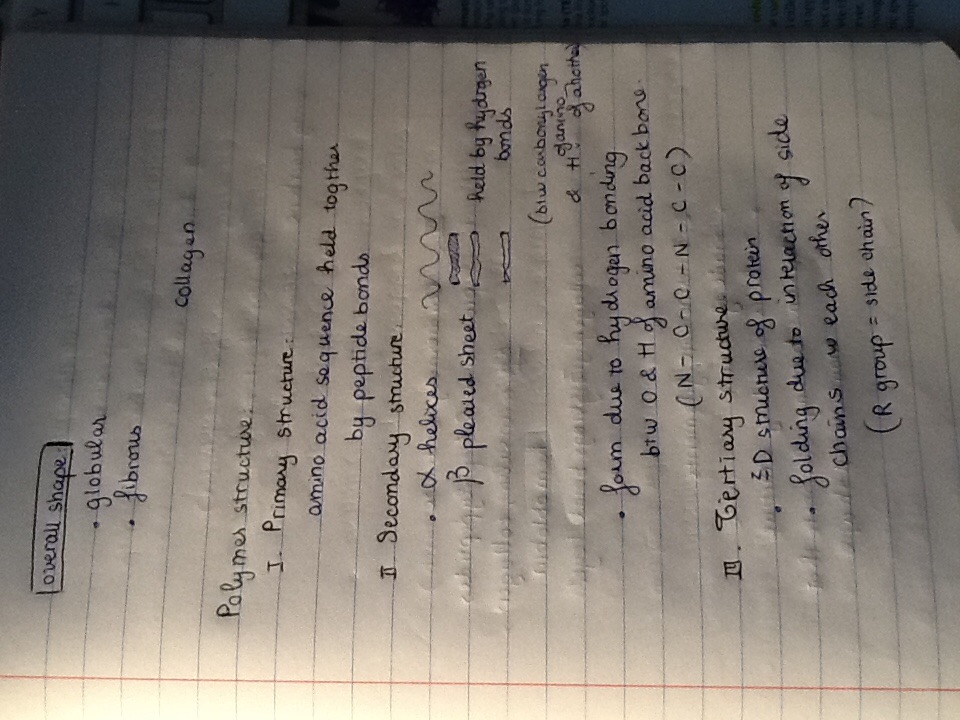 overall shape:
• globular
• fibrous
collagen
Polymer structure:
I. Primary structure:
amino acid sequence held togther
by peptide bonds
II Secondary structure.
• α helixes
β pleated sheet held by hydrogen
bonds
(btw carbonyl oxygen
of amino
& H of another
• form due to hydrogen bonding
btw O & H of amino acid backbone.
(N-C-C-N-C-C)
III. Tertiary structure
• 3D structure of protein
• folding due to interaction of side
chains w each other
(R group = side chain)